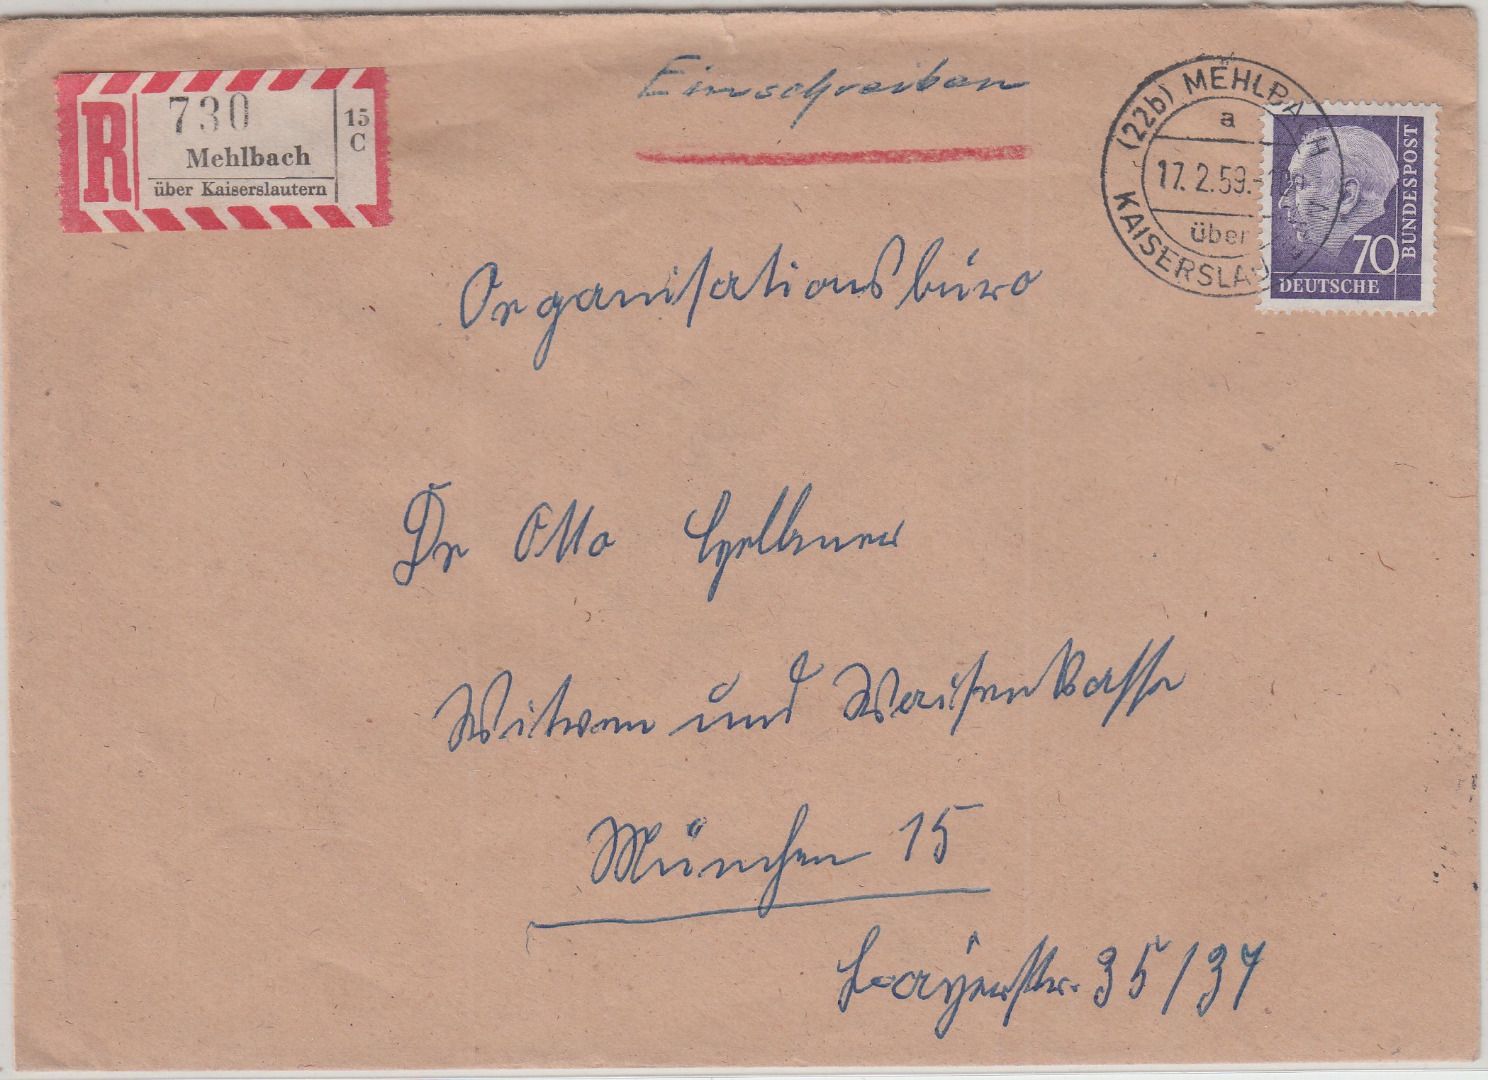 R
730
Mehlbach
über Kaiserslautern
15
C
Einschreiben
(22b) MEHLBACH
a
17.2.59.
über
KAISERSLAU
70
BUNDESPOST
DEUTSCHE
Organisationsbüro
Dr Otto
Witwen und Waisenkasse
München 15
Bayerstr. 35/37